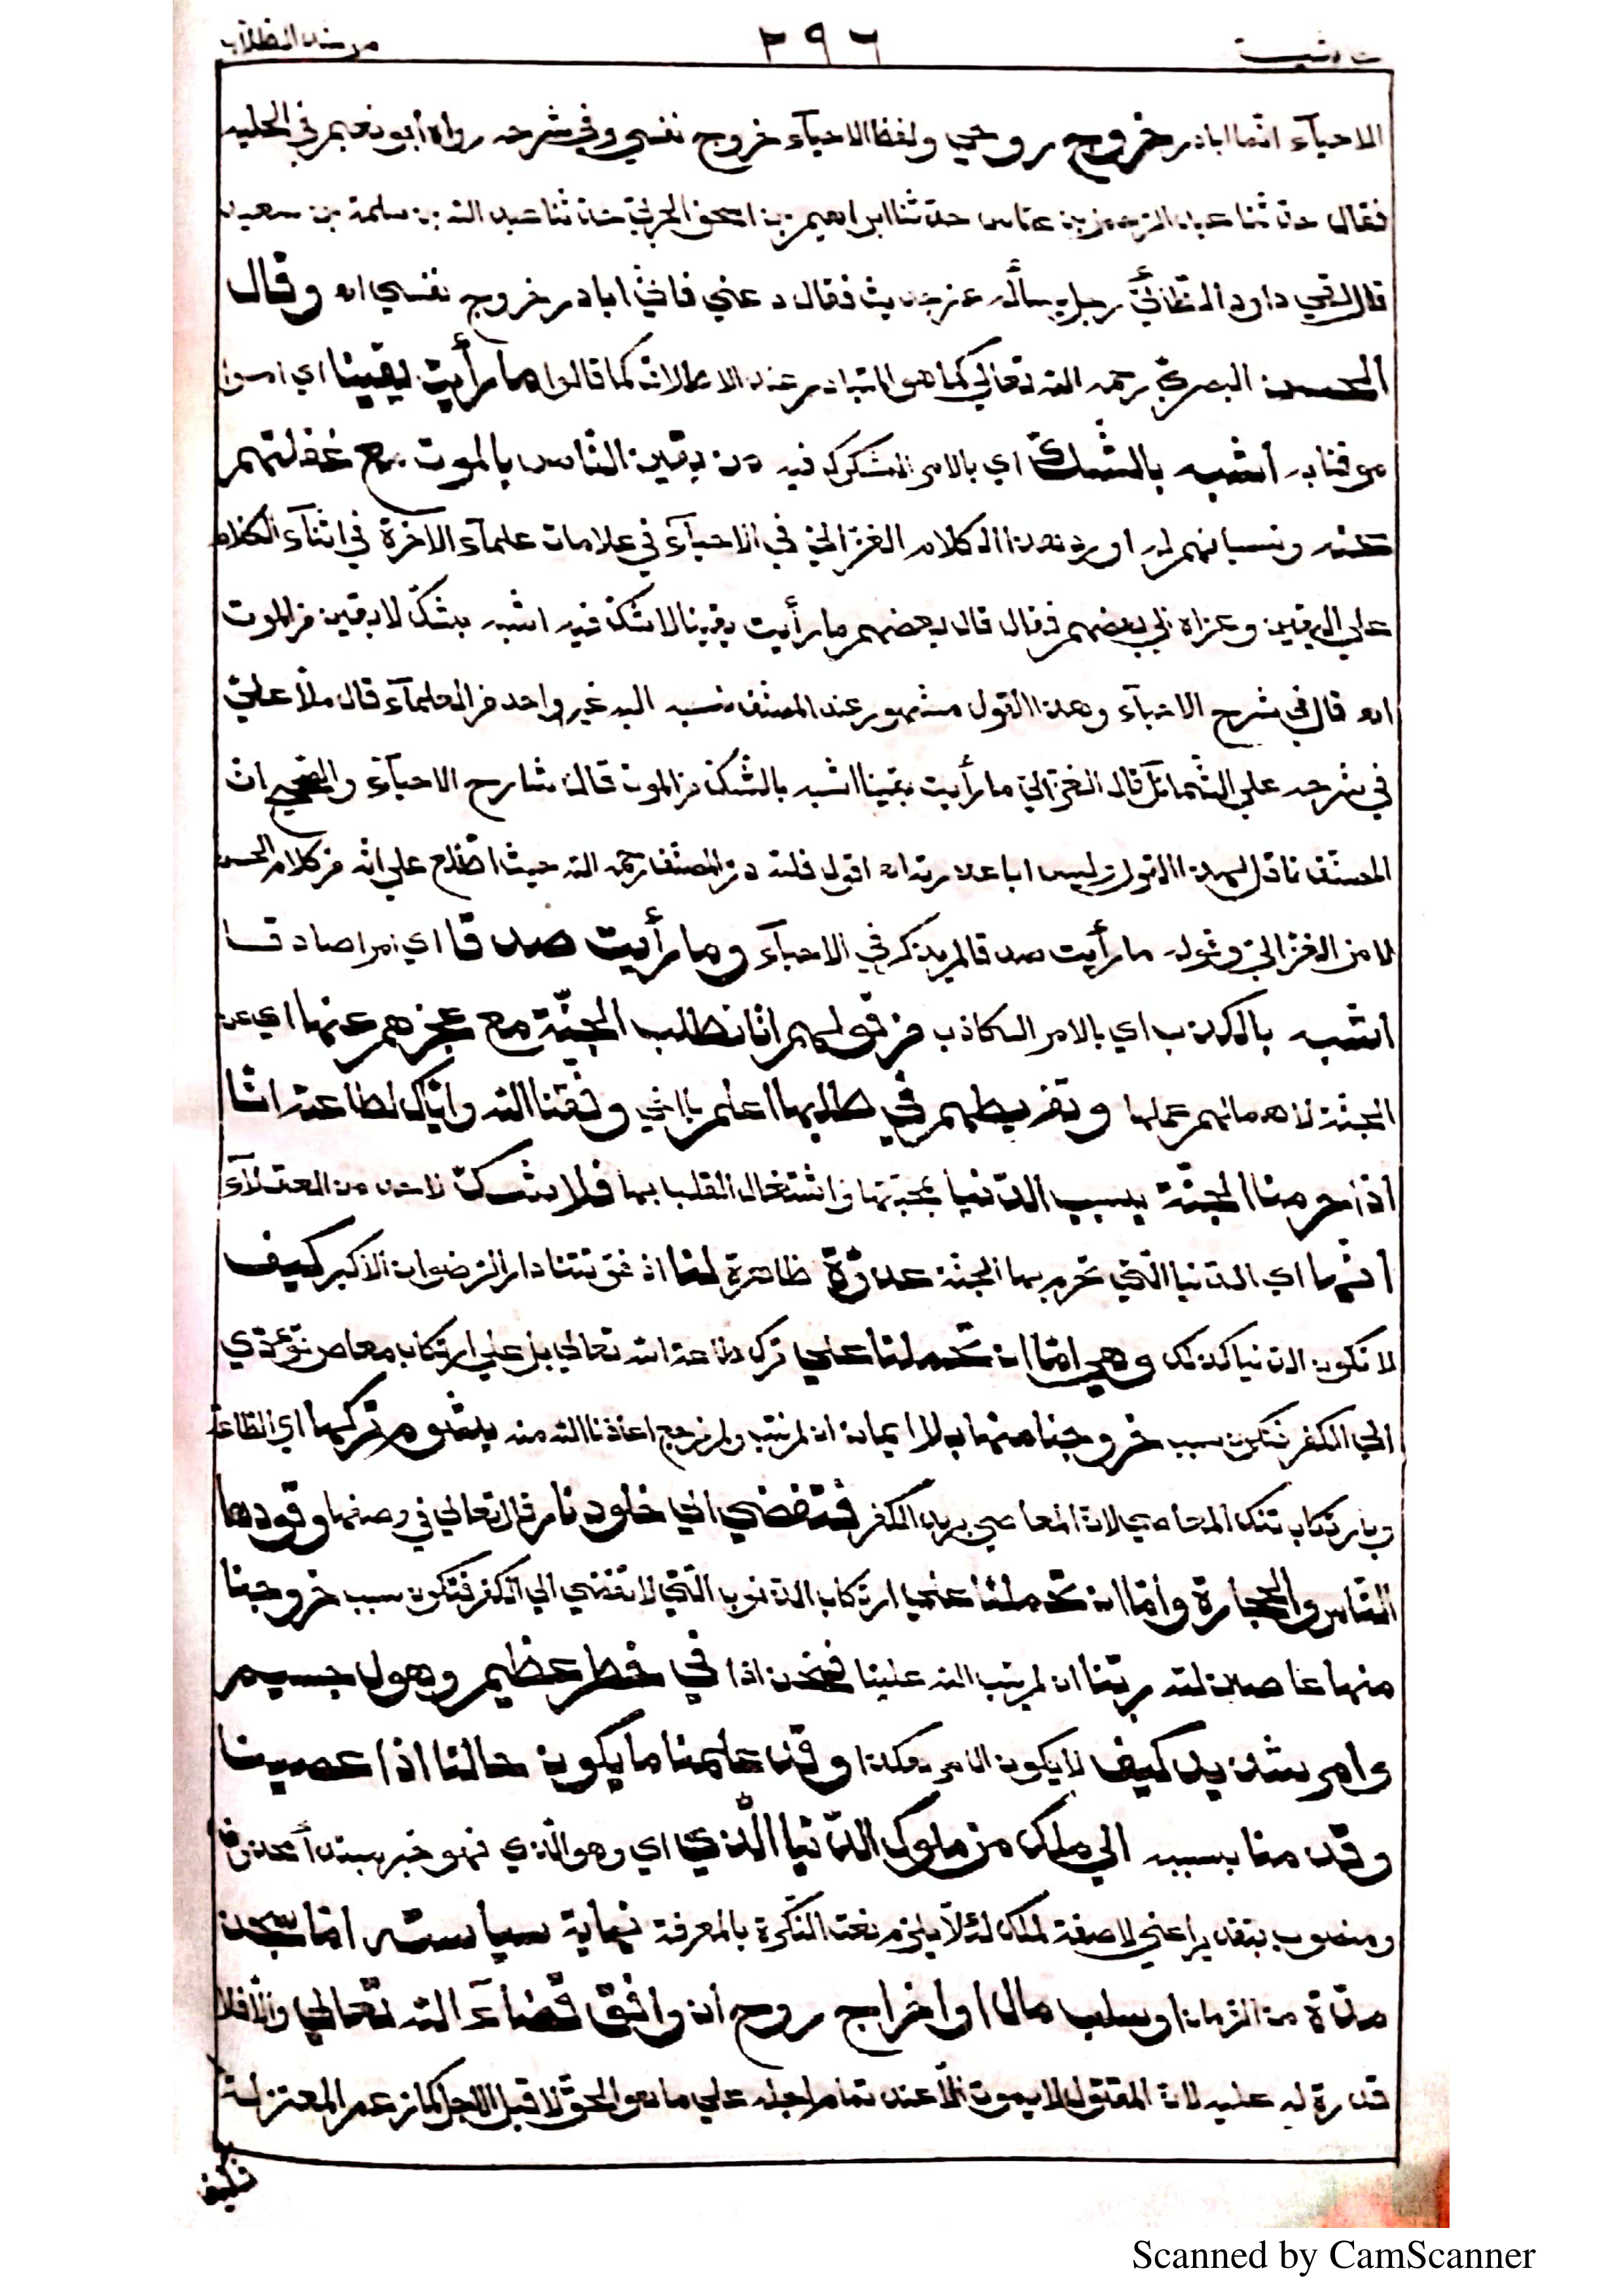 مرشد الطلاب ٢٩٦
الاحيآء انما ابادر خروج روحي ولفظ الاحيآء خروج نفسي وفي شرحه رواه أبو نعيم في الحلية
فقال حدثنا عبد الرحمن بن عباس حدثنا ابراهيم بن اسحق الحربي حدثنا عبد الله بن سلمة بن سعيد
قال لقي داود الطائي رجل يسأله عن حديث فقال دعني فاني ابادر خروج نفسي اه وقال
الحسن البصري رحمه الله تعالى كما هو المتبادر عند الاطلاق كما قالوا ما رأيت يقينا اي امرا
موقنا به أشبه بالشك اي بالامر المشكوك فيه من يقين الناس بالموت مع غفلتهم
عنه ونسيانهم له اورد هذا الكلام الغزالي في الاحيآء في علامات علمآء الآخرة في اثنآء الكلام
على اليقين وعزاه الى بعضهم فقال قال بعضهم ما رأيت يقينا لا شك فيه اشبه بشك لا يقين من الموت
اه قال في شرح الاحيآء وهذا القول مشهور عند المصنف نسبه اليه غير واحد من العلمآء قال ملا علي
في شرحه على الشمائل قال الغزالي ما رأيت يقينا اشبه بالشك من الموت قال شارح الاحيآء والصحيح ان
المصنف ناقل لهذا القول وليس ابا عذرته اه اقول فلله در المصنف رحمه الله حيث اطلع على انه من كلام الحسن
لا من الغزالي وقوله ما رأيت صدقا لم يذكر في الاحيآء وما رأيت صدقا اي امرا صادقا
أشبه بالكذب اي بالامر الكاذب من قولهم انا نطلب الجنّة مع عجزهم عنها اي عن
الجنّة لاهمالهم عملها وتفريطهم في طلبها اعلم يا اخي وفقنا الله واياك لطاعته انا
اذا حرمنا الجنّة بسبب الدنيا بمحبتها واشتغال القلب بها فلا شك لاحد من العقلآء
انها اي الدنيا التي تحرم بها الجنة عدوّة ظاهرة لنا اذ فوتتنا دار الرضوان الاكبر كيف
لا تكون الدنيا كذلك وهي اما ان تحملنا على ترك طاعة الله تعالى بل على ارتكاب معاص تؤدي
الى الكفر فتكون سبب خروجنا منها بلا ايمان ان لم نتب ولم نرجع اعاذنا الله منه بشوم تركها اي الطاعة
وبارتكاب تلك المعاصي لان المعاصي بريد الكفر فتفضي الى خلود نار قال تعالى في وصفها وقودها
الناس والحجارة واما ان تحملنا على ارتكاب الذنوب التي لا تفضي الى الكفر فتكون سبب خروجنا
منها عاصين لله ربنا ان لم يتب الله علينا فنحن اذا في خطر عظيم وهول جسيم
وامر شديد كيف لا يكون الامر هكذا وقد علمنا ما يكون حالنا اذا عصينا
وقدمنا بسببه الى ملك من ملوك الدنيا الّذي اي وهو الذي فهو خبر مبتدأ محذوف
ومنصوب بتقدير اعني لا صفة لملك لئلا يلزم نعت النكرة بالمعرفة نهاية سياسته اما سجن
مدة من الزمان او سلب مال او اخراج روح ان وافق قضآء الله تعالى والا فلا
قدرة له عليه لان المقتول لا يموت الا عند تمام اجله على ما هو الحق لا قبل الاجل كما زعم المعتزلة
Scanned by CamScanner